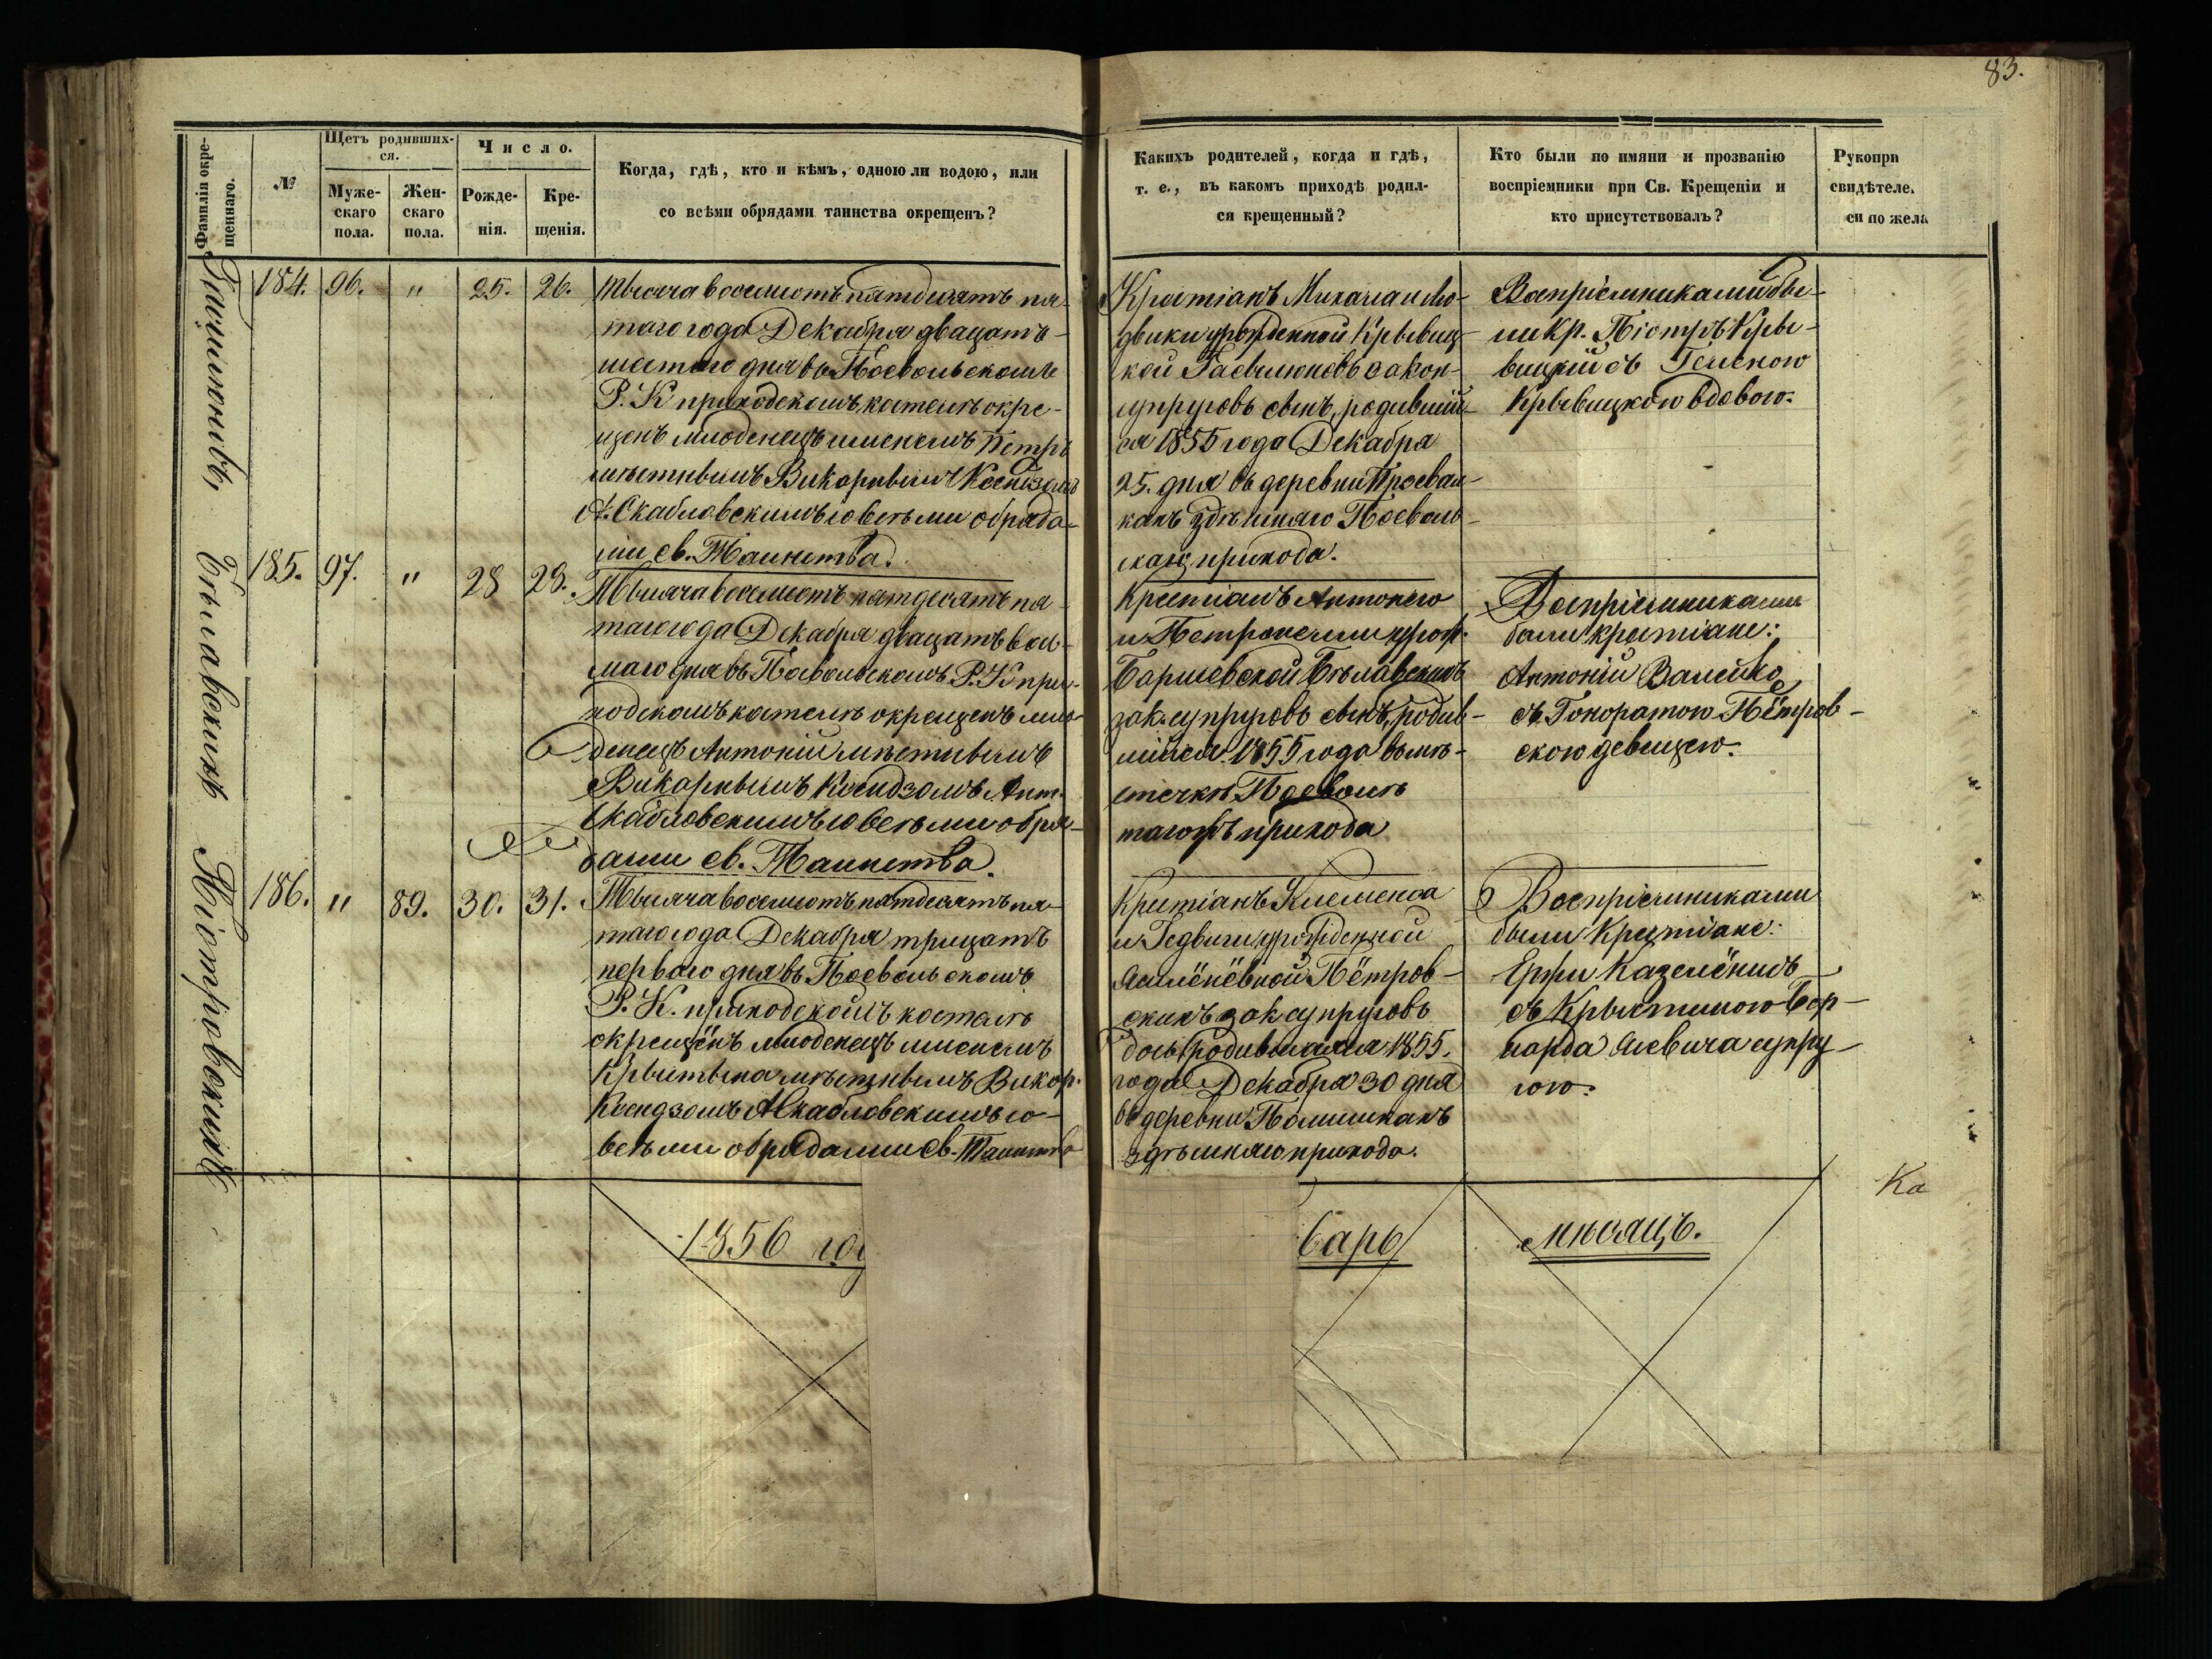 83.
Фамилія окре-
щеннаго.
№
Щетъ родивших-
ся.
Муже-
скаго
пола.
Жен-
скаго
пола.
Число.
Рожде-
нія.
Кре-
щенія.
Когда, гдѣ, кто и кѣмъ, одною ли водою, или
со всѣми обрядами таинства окрещенъ?
Какихъ родителей, когда и гдѣ,
т. е., въ какомъ приходѣ родил-
ся крещенный?
Кто были по имяни и прозванію
воспріемники при Св. Крещеніи и
кто присутствовалъ?
Рукопри
свидѣтеле.
си по жела
184. 96. " 25. 26.
Тысяча восемсотъ пятдесятъ пя-
таго года Декабря двацать-
шестаго дня въ Посвольскомъ
Р. К приходскомъ костелѣ окре-
щенъ младенецъ именемъ Петръ
мѣстнымъ Викарнымъ Ксендзомъ
А. Скабловскимъ со всѣми обряда-
ми св. Таинства.
Крестіанъ Михала и Лю-
двики урожденной Крывиц-
кой закон-
супруговъ сынъ, родивший-
ся 1855 года Декабря
25. дня въ деревни
здѣшняго Посволь-
скаго прихода.
Воспріемниками бы-
ли Кр. Піотръ Кры-
вицкий съ Геленою
Крывицкою вдовою.
Бѣлавскихъ
185. 97. " 28 29.
Тысяча восемсотъ пятдесятъ пя-
таго года Декабря двацать вось-
маго дня въ Посвольскомъ Р. К при-
ходскомъ костелѣ окрещенъ мла-
денецъ Антоній мѣстнымъ
Викарнымъ Ксендзомъ Ант.
Скабловскимъ со всѣми обря-
дами св. Таинства.
Крестіанъ Антонего
и Петронели урож.
Бѣлавскихъ
зак. супруговъ сынъ, родив-
шийся 1855 года въ мѣ-
стечкѣ Посволѣ
тагожъ прихода
Воспріемниками
были крестіане:
Антоній Валейко
съ Гоноратою Пётров-
скою девицею.
Піотровскихъ
186. " 89. 30. 31.
Тысяча восемсотъ пятдесятъ пя-
таго года Декабря трицать
перваго дня въ Посвольскомъ
Р. К. приходскомъ костелѣ
окрещёнъ младенецъ именемъ
Крыстына мѣстнымъ Викар.
Ксендзомъ А Скабловскимъ со
всѣми обрядами св. Таинства
Крестіанъ Клеменса
и Гедвиги урожденной
Пётров-
скихъ зак супруговъ
дочь, родившаяся 1855.
года Декабря 30 дня
въ деревни
здѣшняго прихода.
Воспріемниками
были Крестіане:
съ Крыстиною Бер-
нарда супру-
гою.
1856 го
варь
мѣсяцъ.
Ка